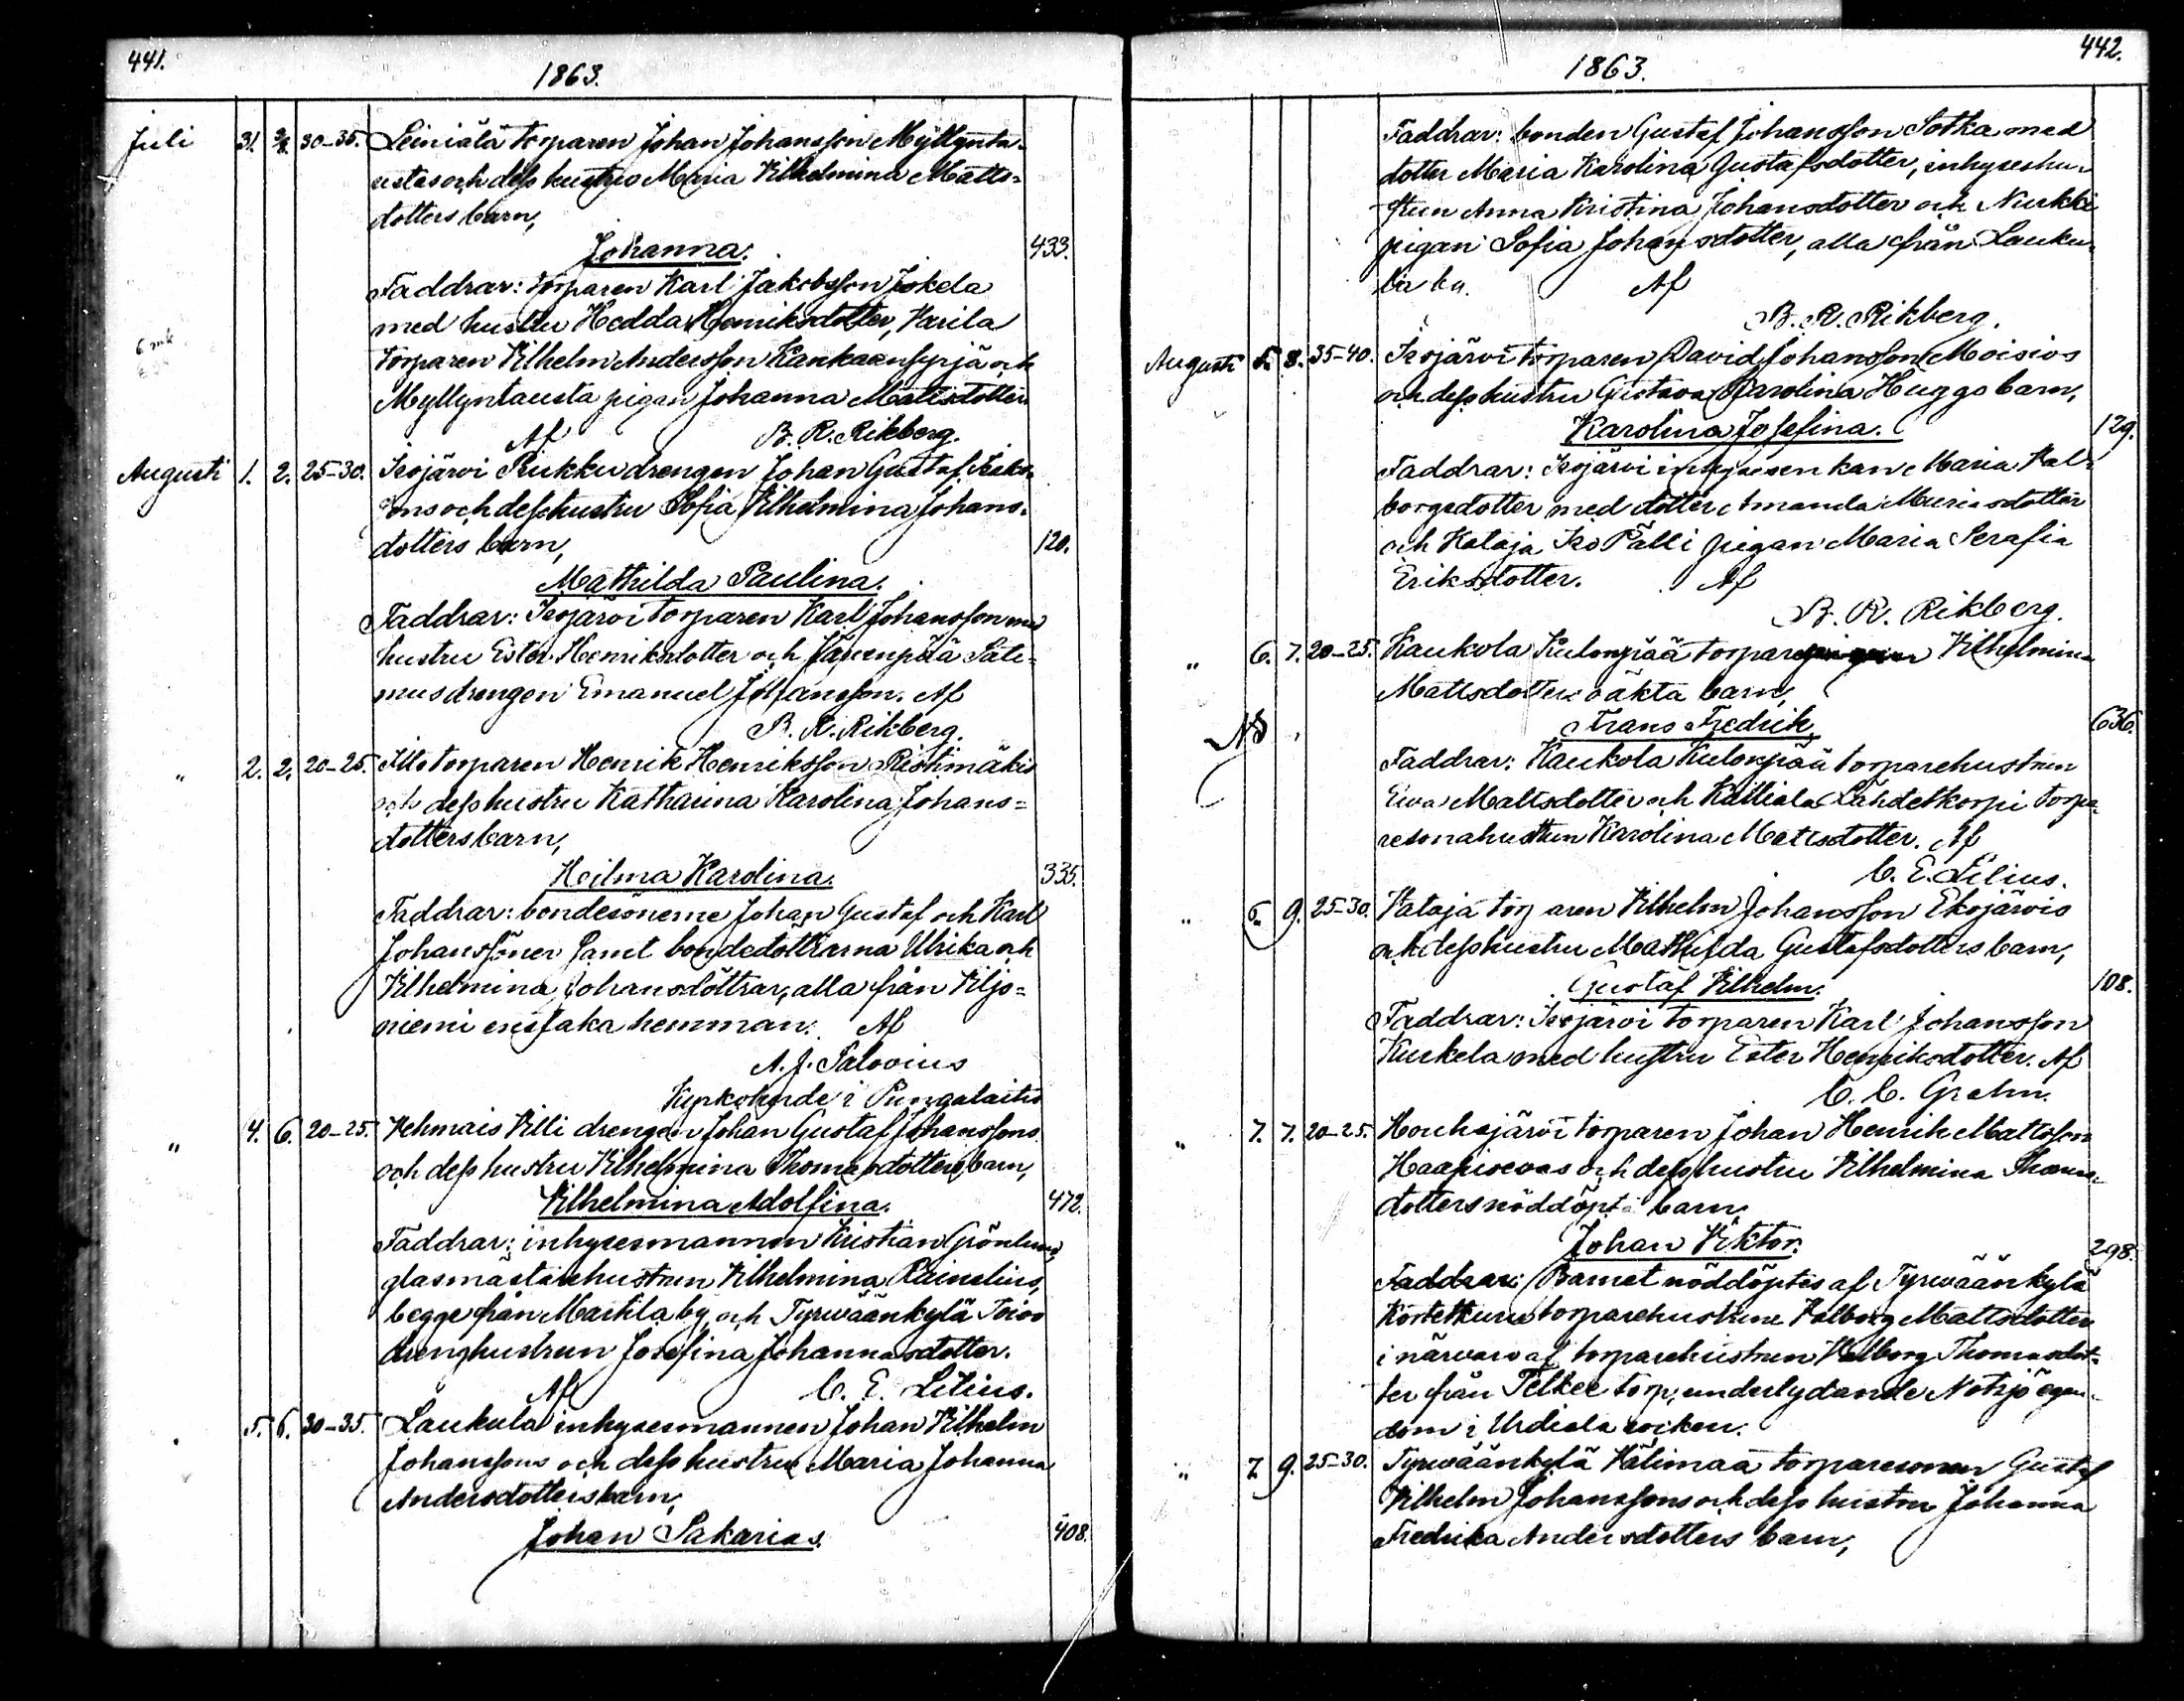 441.
1863.
Juli 31. 2/8. 30-35. Leiniälä torparen Johan Johansson Myllynta-
ustas och dess hustrus Maria Vilhelmina Matts=
dotters barn,
Johanna. 433.
Faddrar: torparen Karl Jakobsson Jokela
med hustru Hedda Henriksdotter, Varila
torparen Vilhelm Andersson Kankaansyrjä och
Myllyntausta pigan Johanna Mattsdotter.
Af B. R. Rikberg.
Augusti 1. 2. 25-30. Isojärvi Rukku drengen Johan Gustaf Isaks-
sons och dess hustru Sofia Vilhelmina Johans-
dotters barn, 120.
Mathilda Paulina.
Faddrar: Isojärvi torparen Karl Johansson med
hustru Ester Henriksdotter och
musdrengen Emanuel Johansson. Af
B. R. Rikberg.
" 2. 2. 20-25. Illo torparen Henrik Henriksson Ristimäkis
och dess hustru Katharina Karolina Johans=
dotters barn,
Heilma Karolina. 335.
Faddrar: bondesönerne Johan Gustaf och Karl
Johanssöner samt bondedöttrarna Ulrika och
Vilhelmina Johansdöttrar, alla från Viljo=
niemi enstaka hemman. Af
A. J. Salovius
Kyrkoherde i Pungalaitio
" 4. 6. 20-25. Vehmais Villi drengen Johan Gustaf Johanssons
och dess hustru Vilhelmina Thomasdotters barn,
Vilhelmina Adolfina. 472.
Faddrar: inhysesmannen Kristian Grönlund,
glasmästarehustrun Vilhelmina Rainelius,
begge från Marttila by, och Tyrwäänkylä Toivo
drenghustrun Josefina Johannasdotter.
Af C. E. Lilius.
5. 6. 30-35. Laukula inhysesmannen Johan Vilhelm
Johanssons och dess hustru Maria Johanna
Andersdotters barn,
Johan Sakarias. 408.
442.
1863.
Faddrar: bonden Gustaf Johansson Sotka med
dotter Maria Karolina Gustafsdotter, inhyseshu-
strun Anna Kristina Johansdotter och Nurkki
pigan Sofia Johansdotter, alla från Lauku-
la by. Af
B. R. Rikberg.
Augusti 5. 8. 35-40. Isojärvi torparen David Johansson Moisios
och dess hustru Gustava Karolina Huggs barn,
Karolina Josefina. 129.
Faddrar: Isojärvi inhyseskan Maria Val-
borgsdotter med dotter Amanda Mariasdotter
och Kataja Iso Pälli pigan Maria Serafia
Eriksdotter. Af
B. R. Rikberg.
" 6. 7. 20-25. Kaukola Kulonpää torpare Vilhelmina
Mattsdotters oäkta barn,
Frans Fredrik. 636.
Faddrar: Kaukola Kulonpää torparehustrun
Eva Mattsdotter och Kalliala Lähdetkorpi torpa-
resonahustrun Karolina Mattsdotter. Af
C. E. Lilius.
" 6. 9. 25-30. Kataja torparen Vilhelm Johansson Ekojärvis
och dess hustru Mathilda Gustafsdotters barn,
Gustaf Vilhelm. 108.
Faddrar: Isojärvi torparen Karl Johansson
Kuskela med hustru Ester Henriksdotter. Af
C. C. Grahn.
" 7. 7. 20-25. Houhajärvi torparen Johan Henrik Mattsson
Haapisevas och dess hustru Vilhelmina Thomas-
dotters nöddöpta barn,
Johan Viktor. 298.
Faddrar: Barnet nöddöptes af Tyrwäänkylä
torparehustrun Valborg Mattsdotter
i närvaro af torparehustrun Valborg Thomasdot-
ter från Pelkee torp, underlydande Notsjö egen-
dom i Urdiala socken.
" 7. 9. 25-30. Tyrwäänkylä Välimaa torparesonen Gustaf
Vilhelm Johanssons och dess hustru Johanna
Fredrika Andersdotters barn,